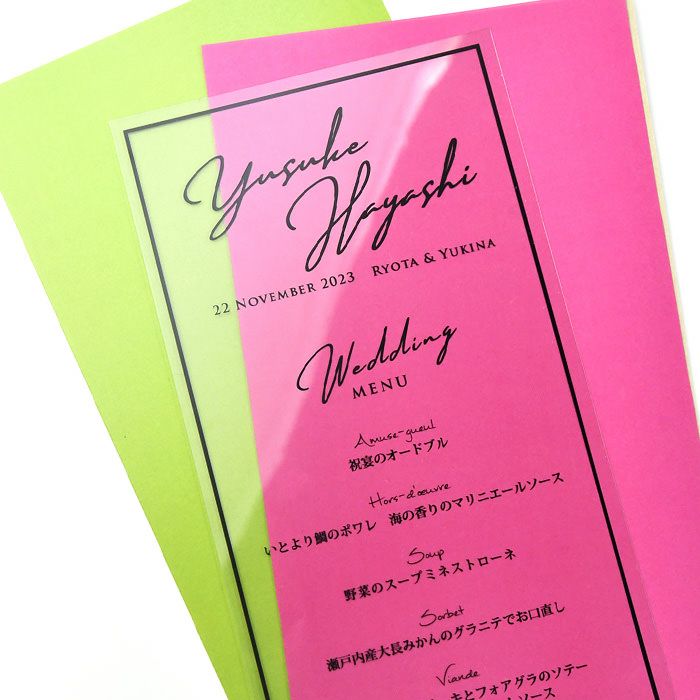 Yusuke
Hayashi
22 November 2023 Ryota & Yukina
Wedding
MENU
Amuse-gueul
祝宴のオードブル
Hors-d'œuvre
いとより鯛のポワレ 海の香りのマリニエールソース
Soup
野菜のスープミネストローネ
Sorbet
瀬戸内産大長みかんのグラニテでお口直し
Viande
キとフォアグラのソテー
ソース